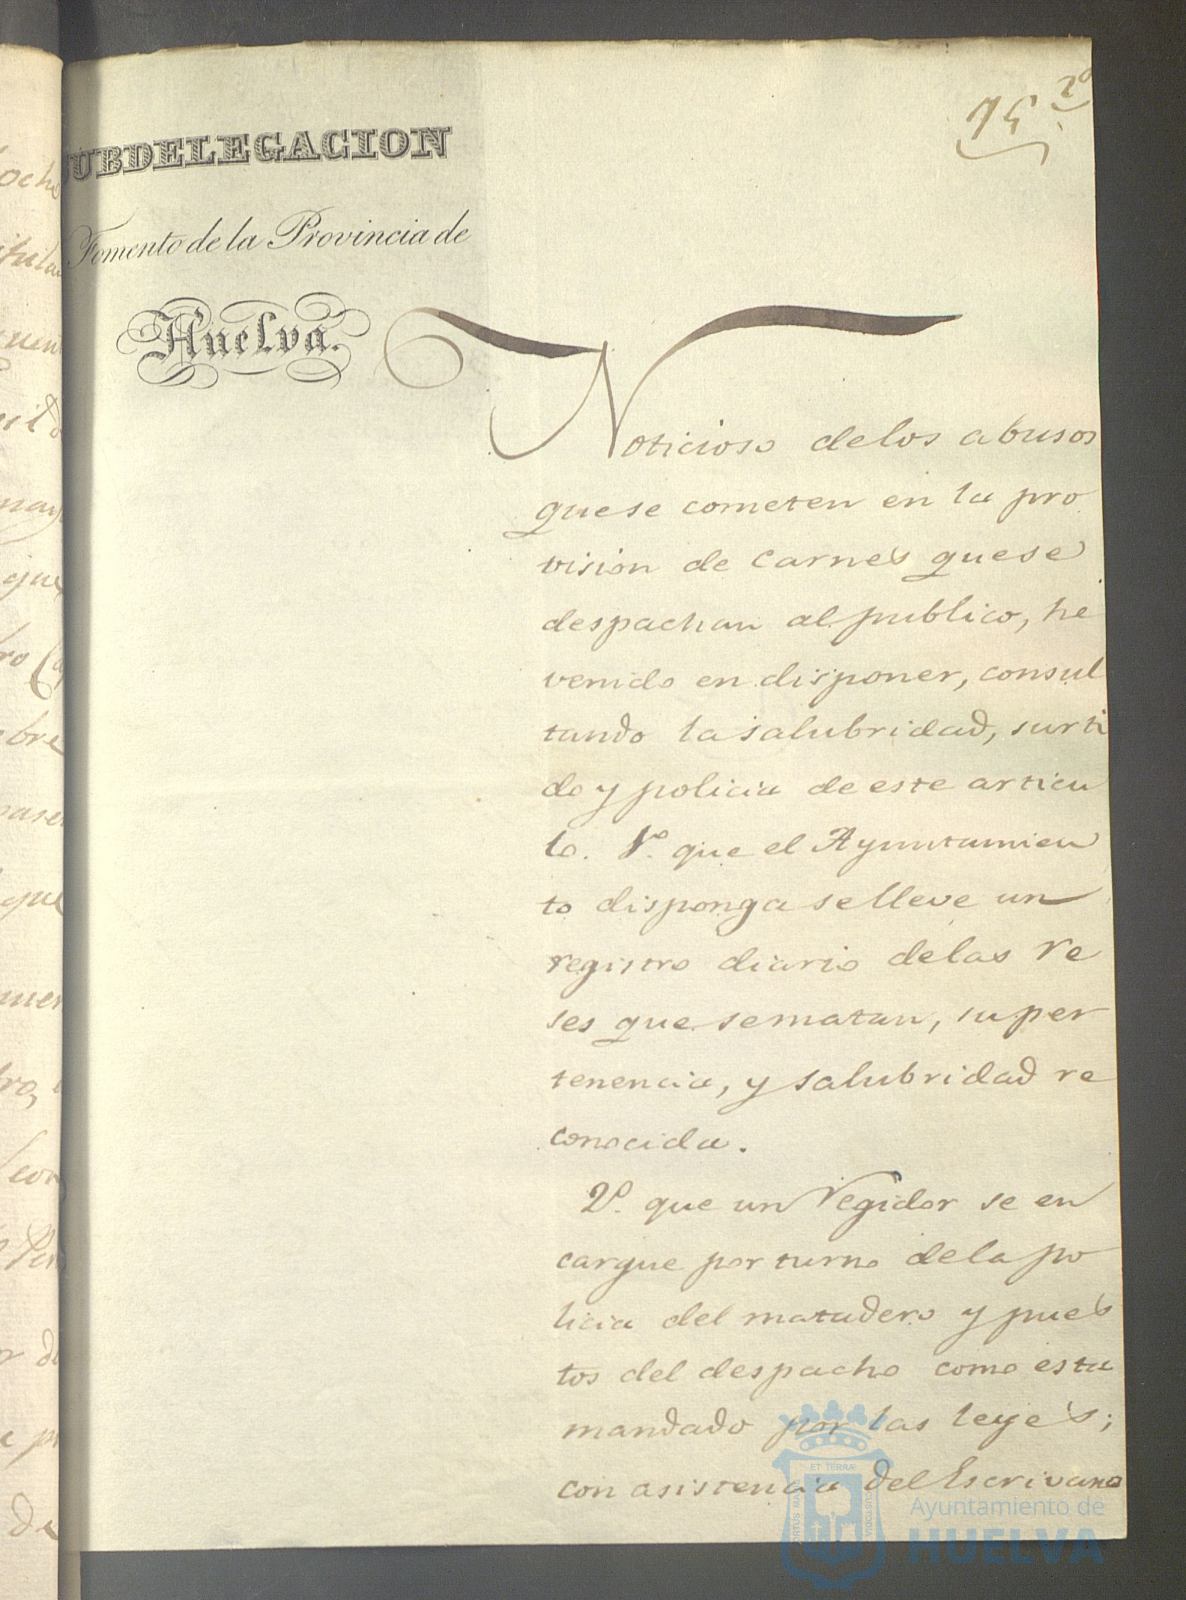 UBDELEGACION
Fomento de la Provincia de
Huelva.
Noticioso delos abusos
quese cometen en la pro
vision de carnes quese
despachan al publico, he
venido en disponer, consul
tando la salubridad, surti
do y policia de este articu
lo. 1º. que el Ayuntamien
to disponga selleve un
registro diario delas re
ses que sematan, su per
tenencia, y salubridad re
conocida.
2º. que un Regidor se en
cargue por turno dela po
licia del matadero y pues
tos del despacho como esta
mandado por las leyes;
con asistencia del Escrivano
Ayuntamiento de
HUELVA